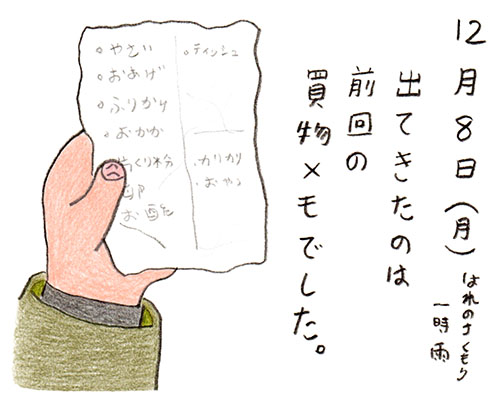 12月8日(月)
はれのちくもり
一時雨
出てきたのは
前回の
買物メモでした。
。やさい
。おあげ
。ふりかけ
。おかか
お酢
。ティッシュ
・カリカリ
・おやつ